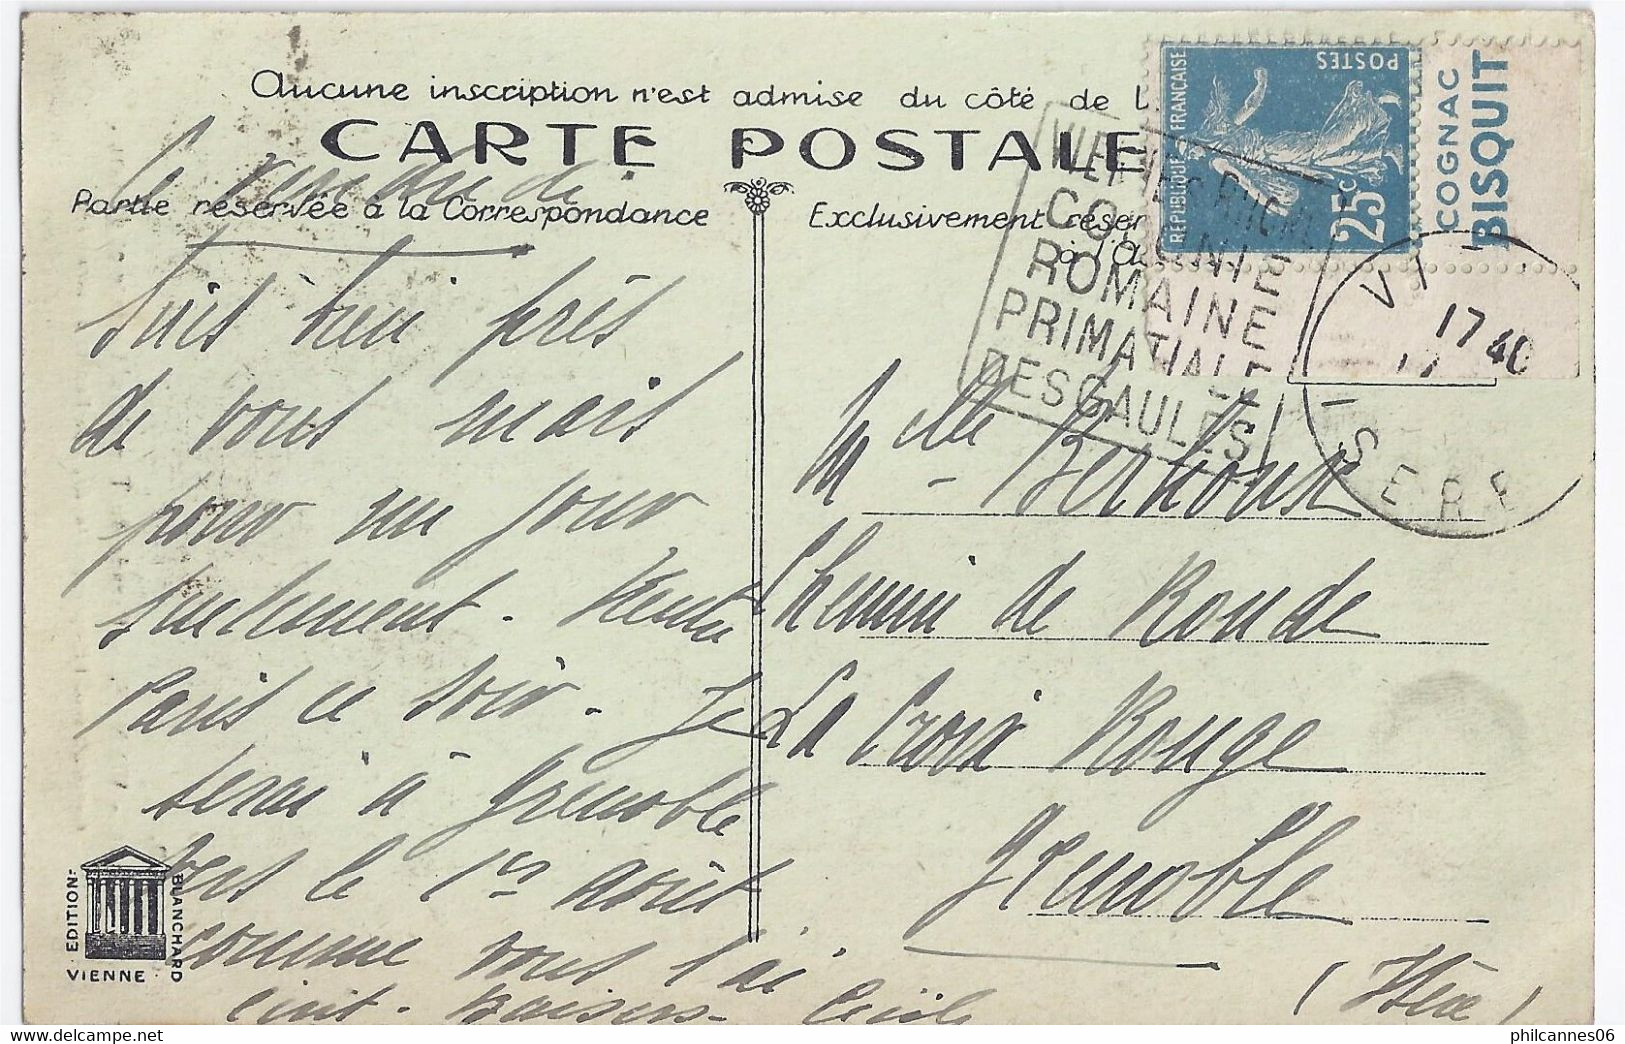 Aucune inscription n'est admise du côté de l
CARTE POSTALE
Partie réservée à la Correspondance
Exclusivement réser
à l'A
POSTES
REPUBLIQUE FRANÇAISE
25c
COGNAC
BISQUIT
VIENNE
ROMAINE
PRIMATIALE
DES GAULES
17 40
ISERE
Ce vendredi
Suis bien près
de vous mais
pour un jour
seulement. Rentre
Paris ce soir. Je
serai à Grenoble
vers le 1er août
comme vous l'ai
écrit. Baisers. Cécile
Mlle
Chemin de Ronde
La Croix Rouge
Grenoble
(Isère)
EDITION
BLANCHARD
VIENNE
philcannes06